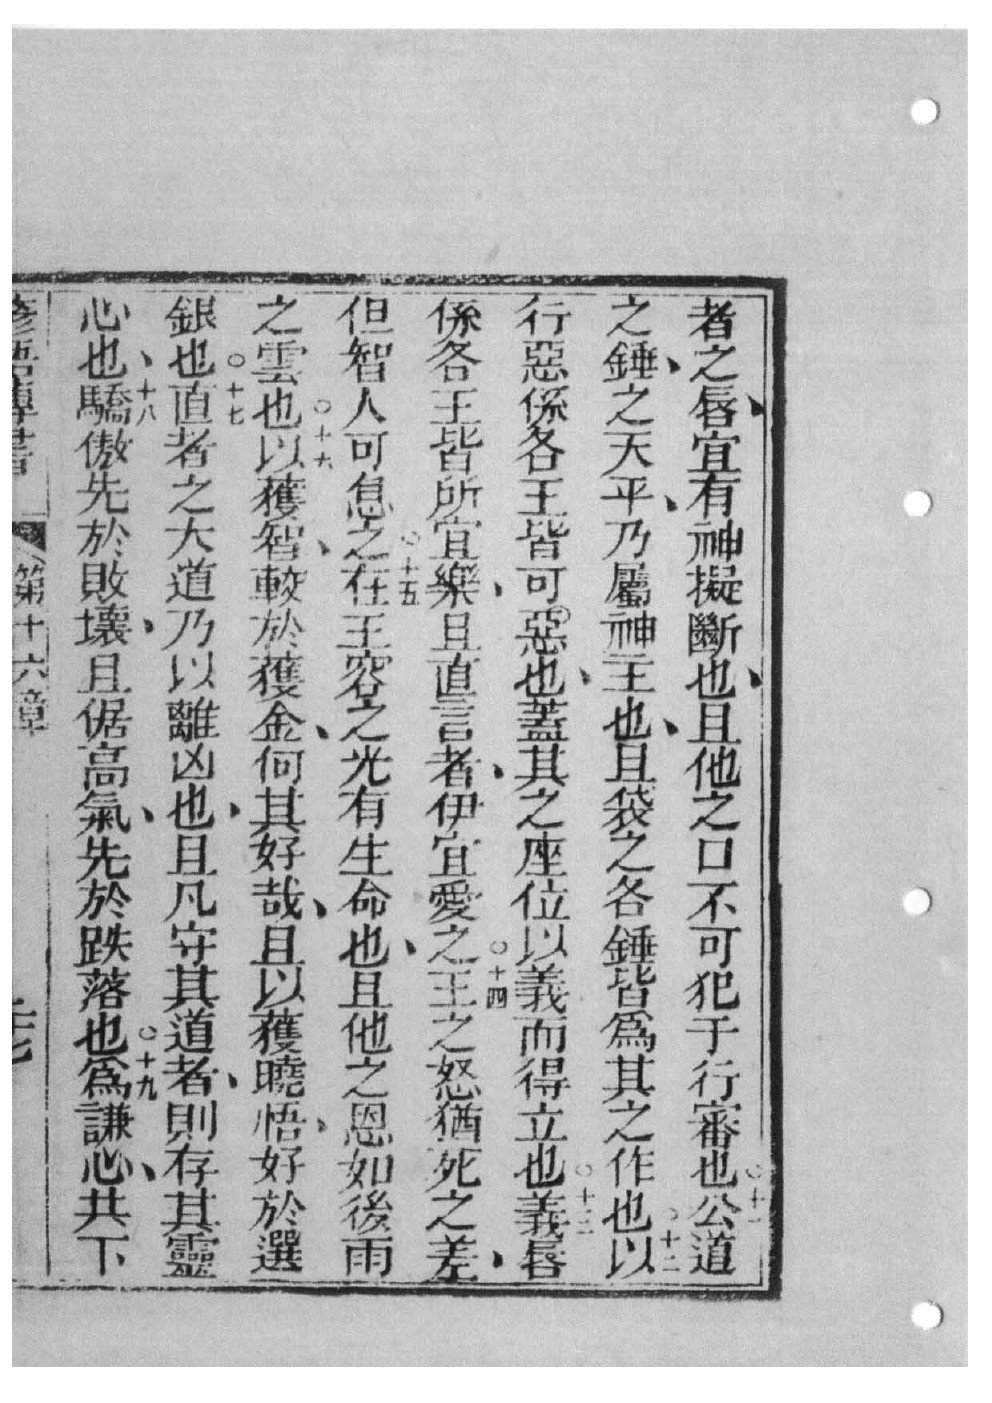 者之唇、宜有神擬斷也、且他之口不可犯于行審也○十一公道
之錘、之天平、乃屬神王也、且袋之各錘皆爲其之作也○十二以
行惡係各王皆可惡也、蓋其之座位以義而得立也○十三義唇
係各王皆所宜樂、且直言者、伊宜愛之○十四王之怒猶死之差、
但智人可息之○十五在王容之光有生命也、且他之恩如後雨
之雲也○十六以獲智、較於獲金、何其好哉、且以獲曉悟、好於選
銀也○十七直者之大道乃以離凶也、且凡守其道者、則存其靈
心也、○十八驕傲先於敗壞、且倨高氣、先於跌落也○十九爲謙心、共下
諺語傳書 第十六章